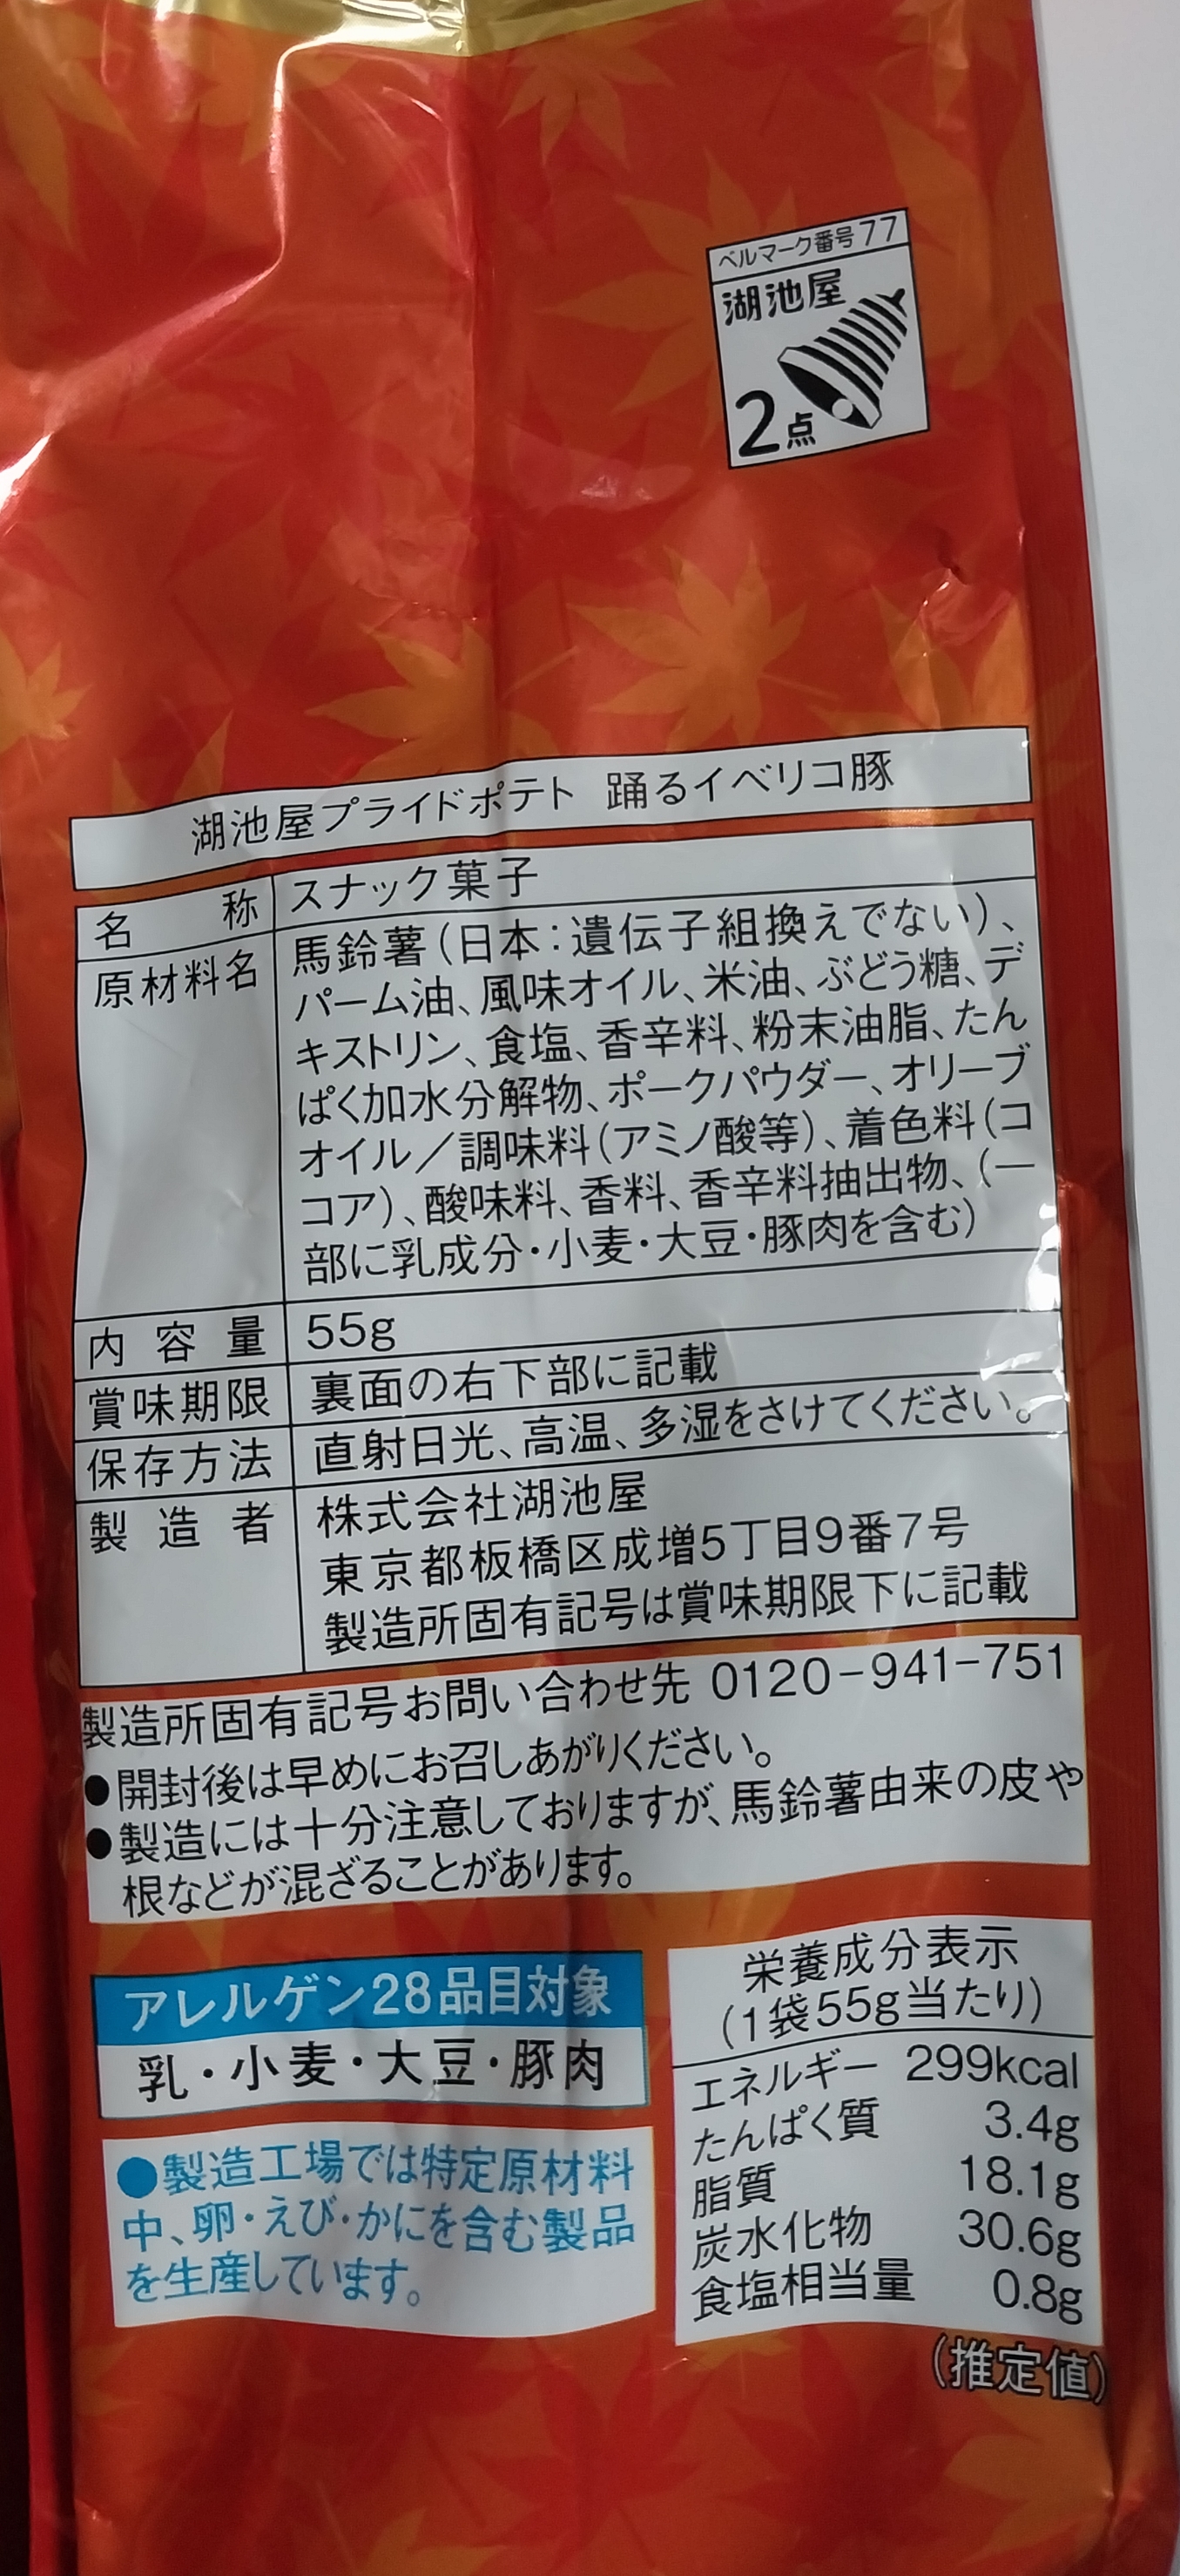 ベルマーク番号77
湖池屋
2点
湖池屋プライドポテト 踊るイベリコ豚
名称 スナック菓子
原材料名 馬鈴薯(日本:遺伝子組換えでない)、
パーム油、風味オイル、米油、ぶどう糖、デ
キストリン、食塩、香辛料、粉末油脂、たん
ぱく加水分解物、ポークパウダー、オリーブ
オイル/調味料(アミノ酸等)、着色料(コ
コア)、酸味料、香料、香辛料抽出物、(一
部に乳成分・小麦・大豆・豚肉を含む)
内容量 55g
賞味期限 裏面の右下部に記載
保存方法 直射日光、高温、多湿をさけてください。
製造者 株式会社湖池屋
東京都板橋区成増5丁目9番7号
製造所固有記号は賞味期限下に記載
製造所固有記号お問い合わせ先 0120-941-751
●開封後は早めにお召しあがりください。
●製造には十分注意しておりますが、馬鈴薯由来の皮や
根などが混ざることがあります。
アレルゲン28品目対象
乳・小麦・大豆・豚肉
●製造工場では特定原材料
中、卵・えび・かにを含む製品
を生産しています。
栄養成分表示
(1袋55g当たり)
エネルギー 299kcal
たんぱく質 3.4g
脂質 18.1g
炭水化物 30.6g
食塩相当量 0.8g
(推定値)